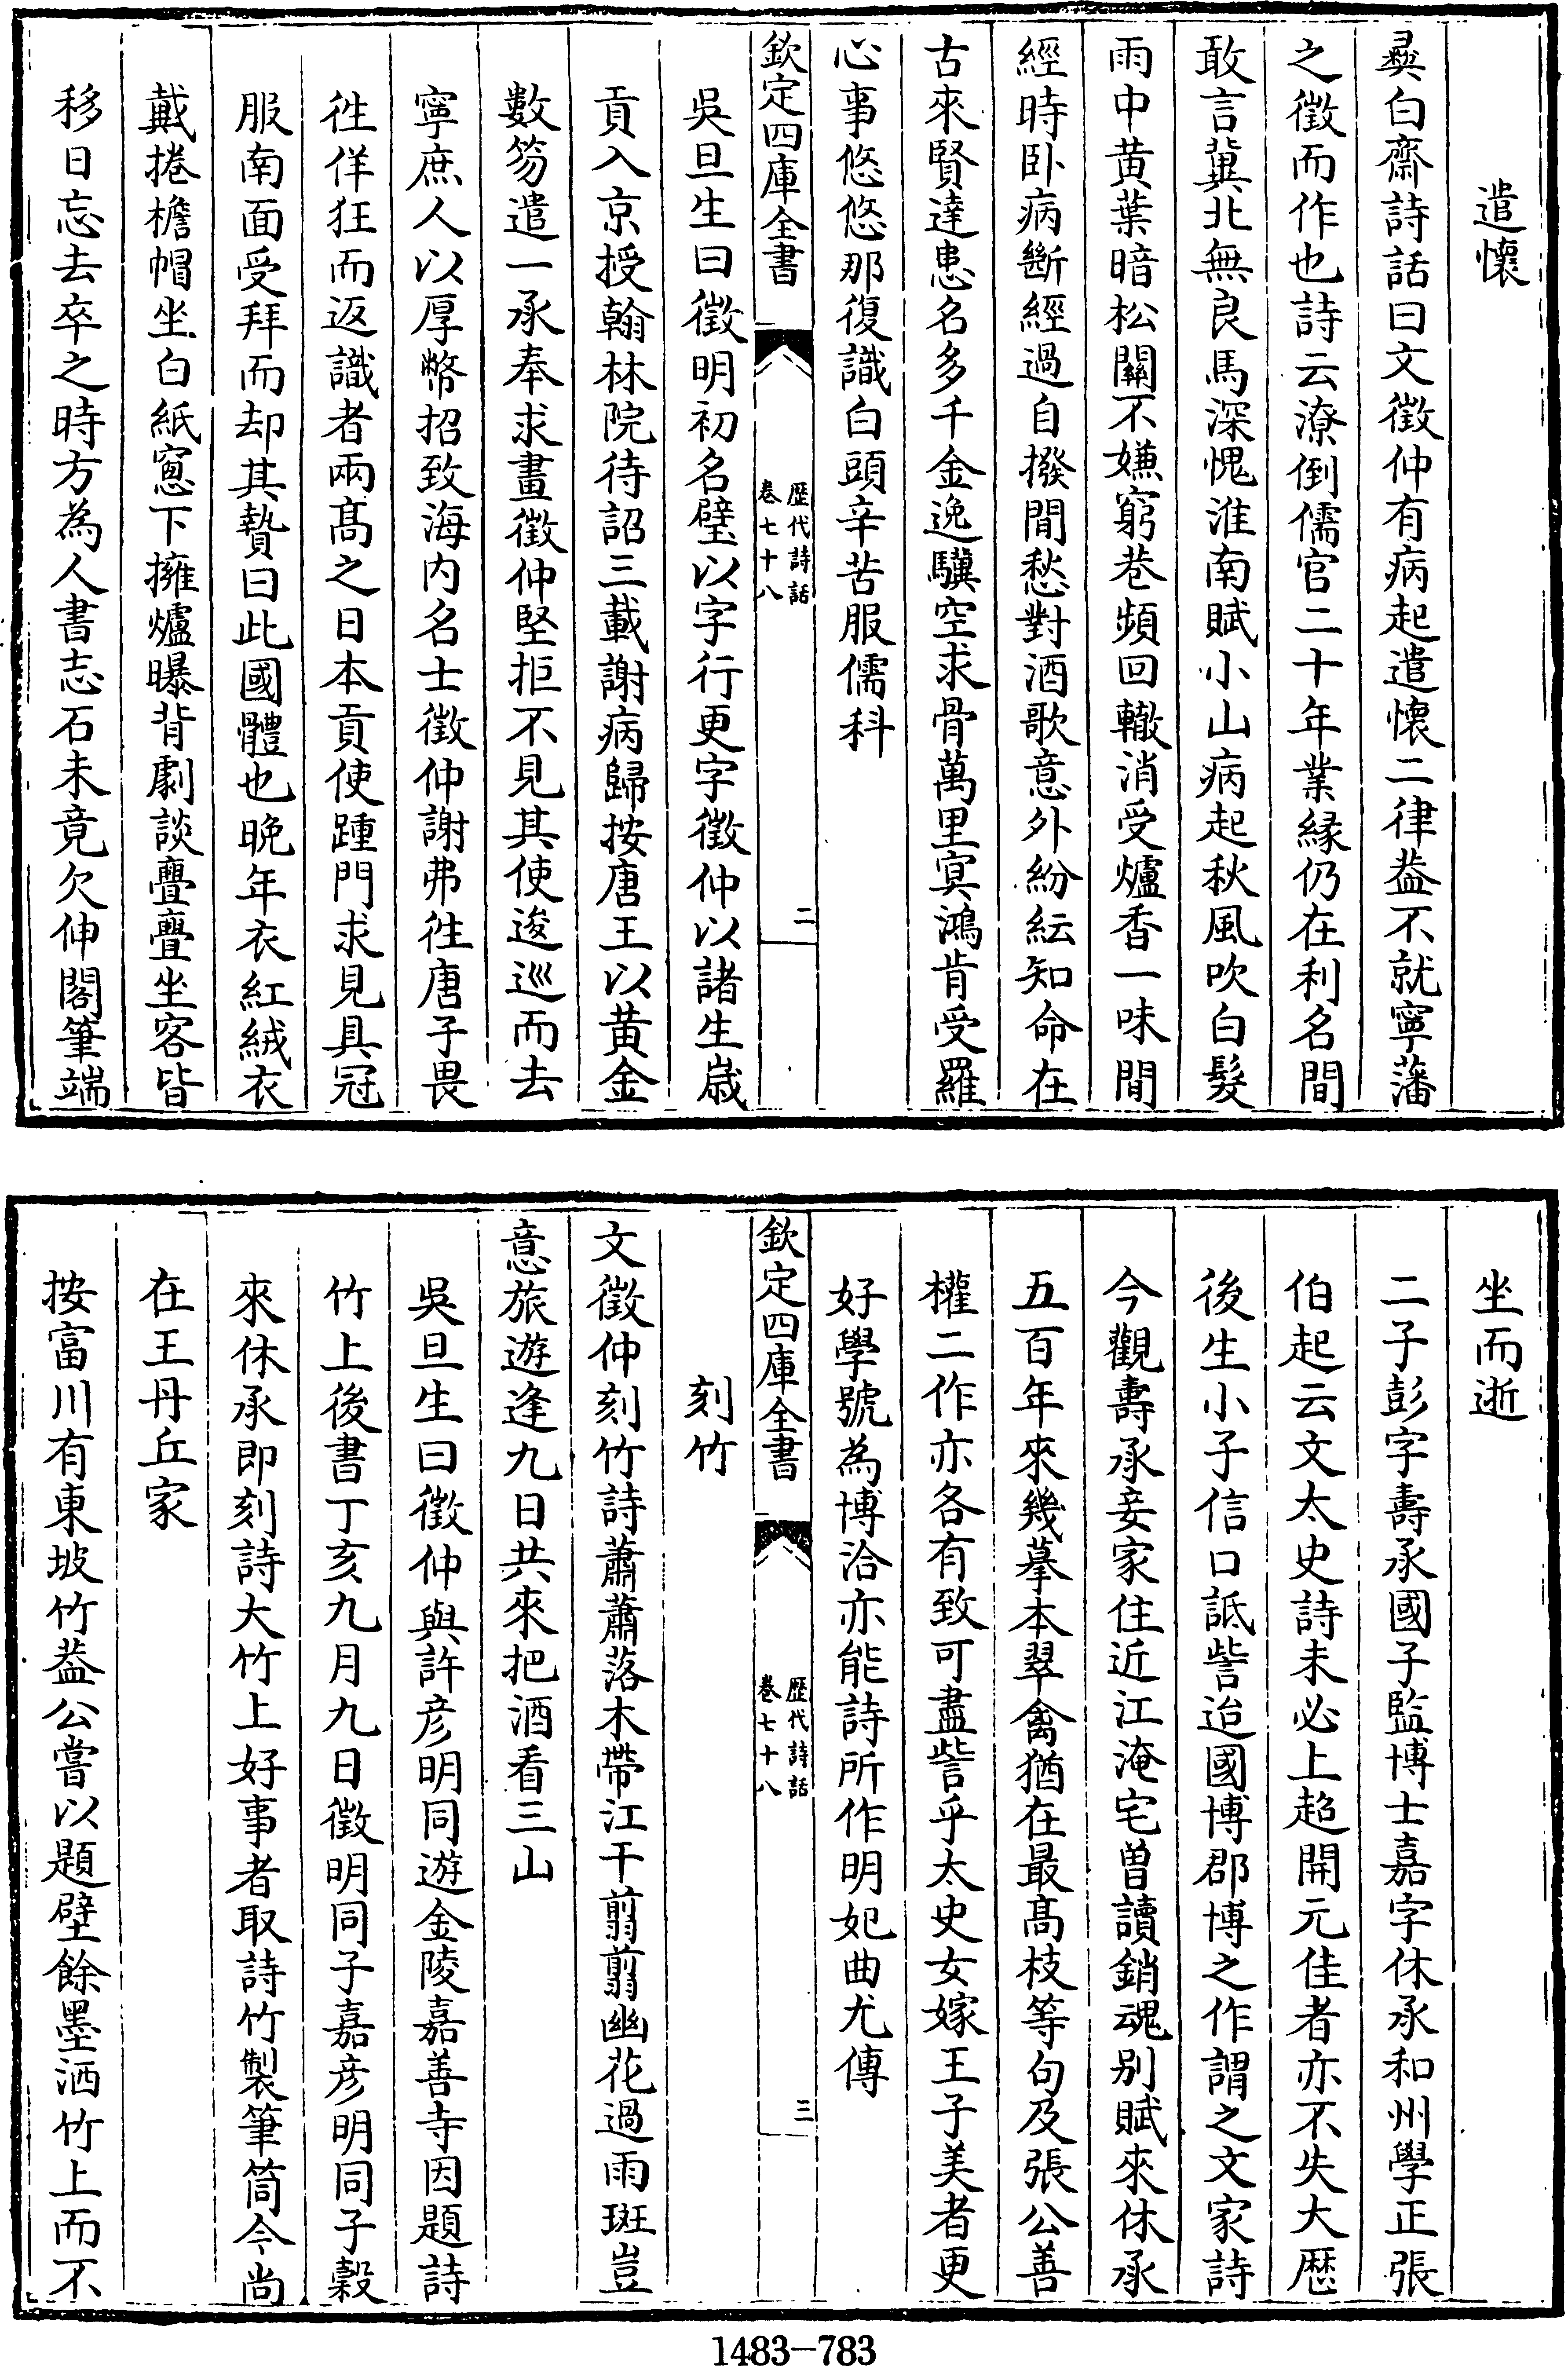 遣懷
彛白齋詩話曰文徵仲有病起遣懷二律葢不就寧藩
之徵而作也詩云潦倒儒官二十年業緣仍在利名間
敢言冀北無良馬深愧淮南賦小山病起秋風吹白髮
雨中黄葉暗松關不嫌窮巷頻回轍消受爐香一味閒
經時卧病斷經過自撥閒愁對酒歌意外紛紜知命在
古來賢達患名多千金逸驥空求骨萬里冥鴻肯受羅
心事悠悠那復識白頭辛苦服儒科
欽定四庫全書
歴代詩話
卷七十八
二
吳旦生曰徵明初名璧以字行更字徵仲以諸生歲
貢入京授翰林院待詔三載謝病歸按唐王以黄金
數笏遣一承奉求畫徵仲堅拒不見其使逡巡而去
寧庶人以厚幣招致海内名士徵仲謝弗徃唐子畏
徃佯狂而返識者兩髙之日本貢使踵門求見具冠
服南面受拜而却其贄曰此國體也晚年衣紅絨衣
戴捲檐帽坐白紙窻下擁爐曝背劇談亹亹坐客皆
移日忘去卒之時方為人書志石未竟欠伸閣筆端
坐而逝
二子彭字壽承國子監博士嘉字休承和州學正張
伯起云文太史詩未必上超開元佳者亦不失大歴
後生小子信口詆訾迨國博郡博之作謂之文家詩
今觀壽承妾家住近江淹宅曽讀銷魂别賦來休承
五百年來幾摹本翠禽猶在最髙枝等句及張公善
權二作亦各有致可盡訾乎太史女嫁王子美者更
好學號為博洽亦能詩所作明妃曲尤傳
欽定四庫全書
歴代詩話
卷七十八
三
刻竹
文徵仲刻竹詩蕭蕭落木帶江干翦翦幽花過雨斑豈
意旅遊逢九日共來把酒看三山
吳旦生曰徵仲與許彦明同遊金陵嘉善寺因題詩
竹上後書丁亥九月九日徵明同子嘉彦明同子穀
來休承即刻詩大竹上好事者取詩竹製筆筒今尚
在王丹丘家
按富川有東坡竹葢公嘗以題壁餘墨洒竹上而不
1483-783